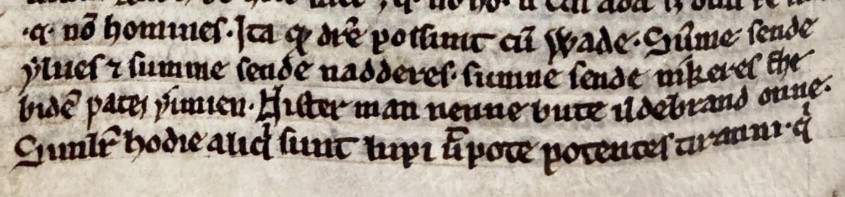 ·q· nō homines· Ita qd̄ dic̄e possunt cū Wade· Sūme sende
ylues ⁊ summe sende nadderes· sumne sende nikeres the
bidē pates ẏinnen· Hister man nenne bute ildebrand onne·
Simlr̄ hodie aliq̇ sunt lupi ut̄pote potentes tiranni· q̇